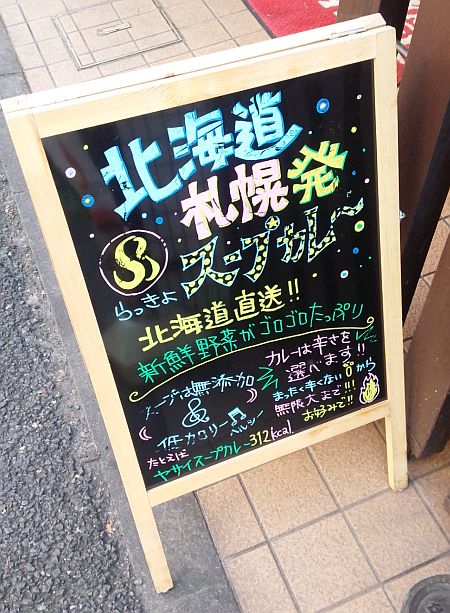 北海道
札幌発
スープカレー
らっきょ
北海道直送!!
新鮮野菜がゴロゴロたっぷり
スープは無添加
&
低カロリー♫
ヘルシー
たとえば
ヤサイスープカレー312kcal
カレーは辛さを
選べます!!
まったく辛くない0から
無限大まで!!!
お好みで!!